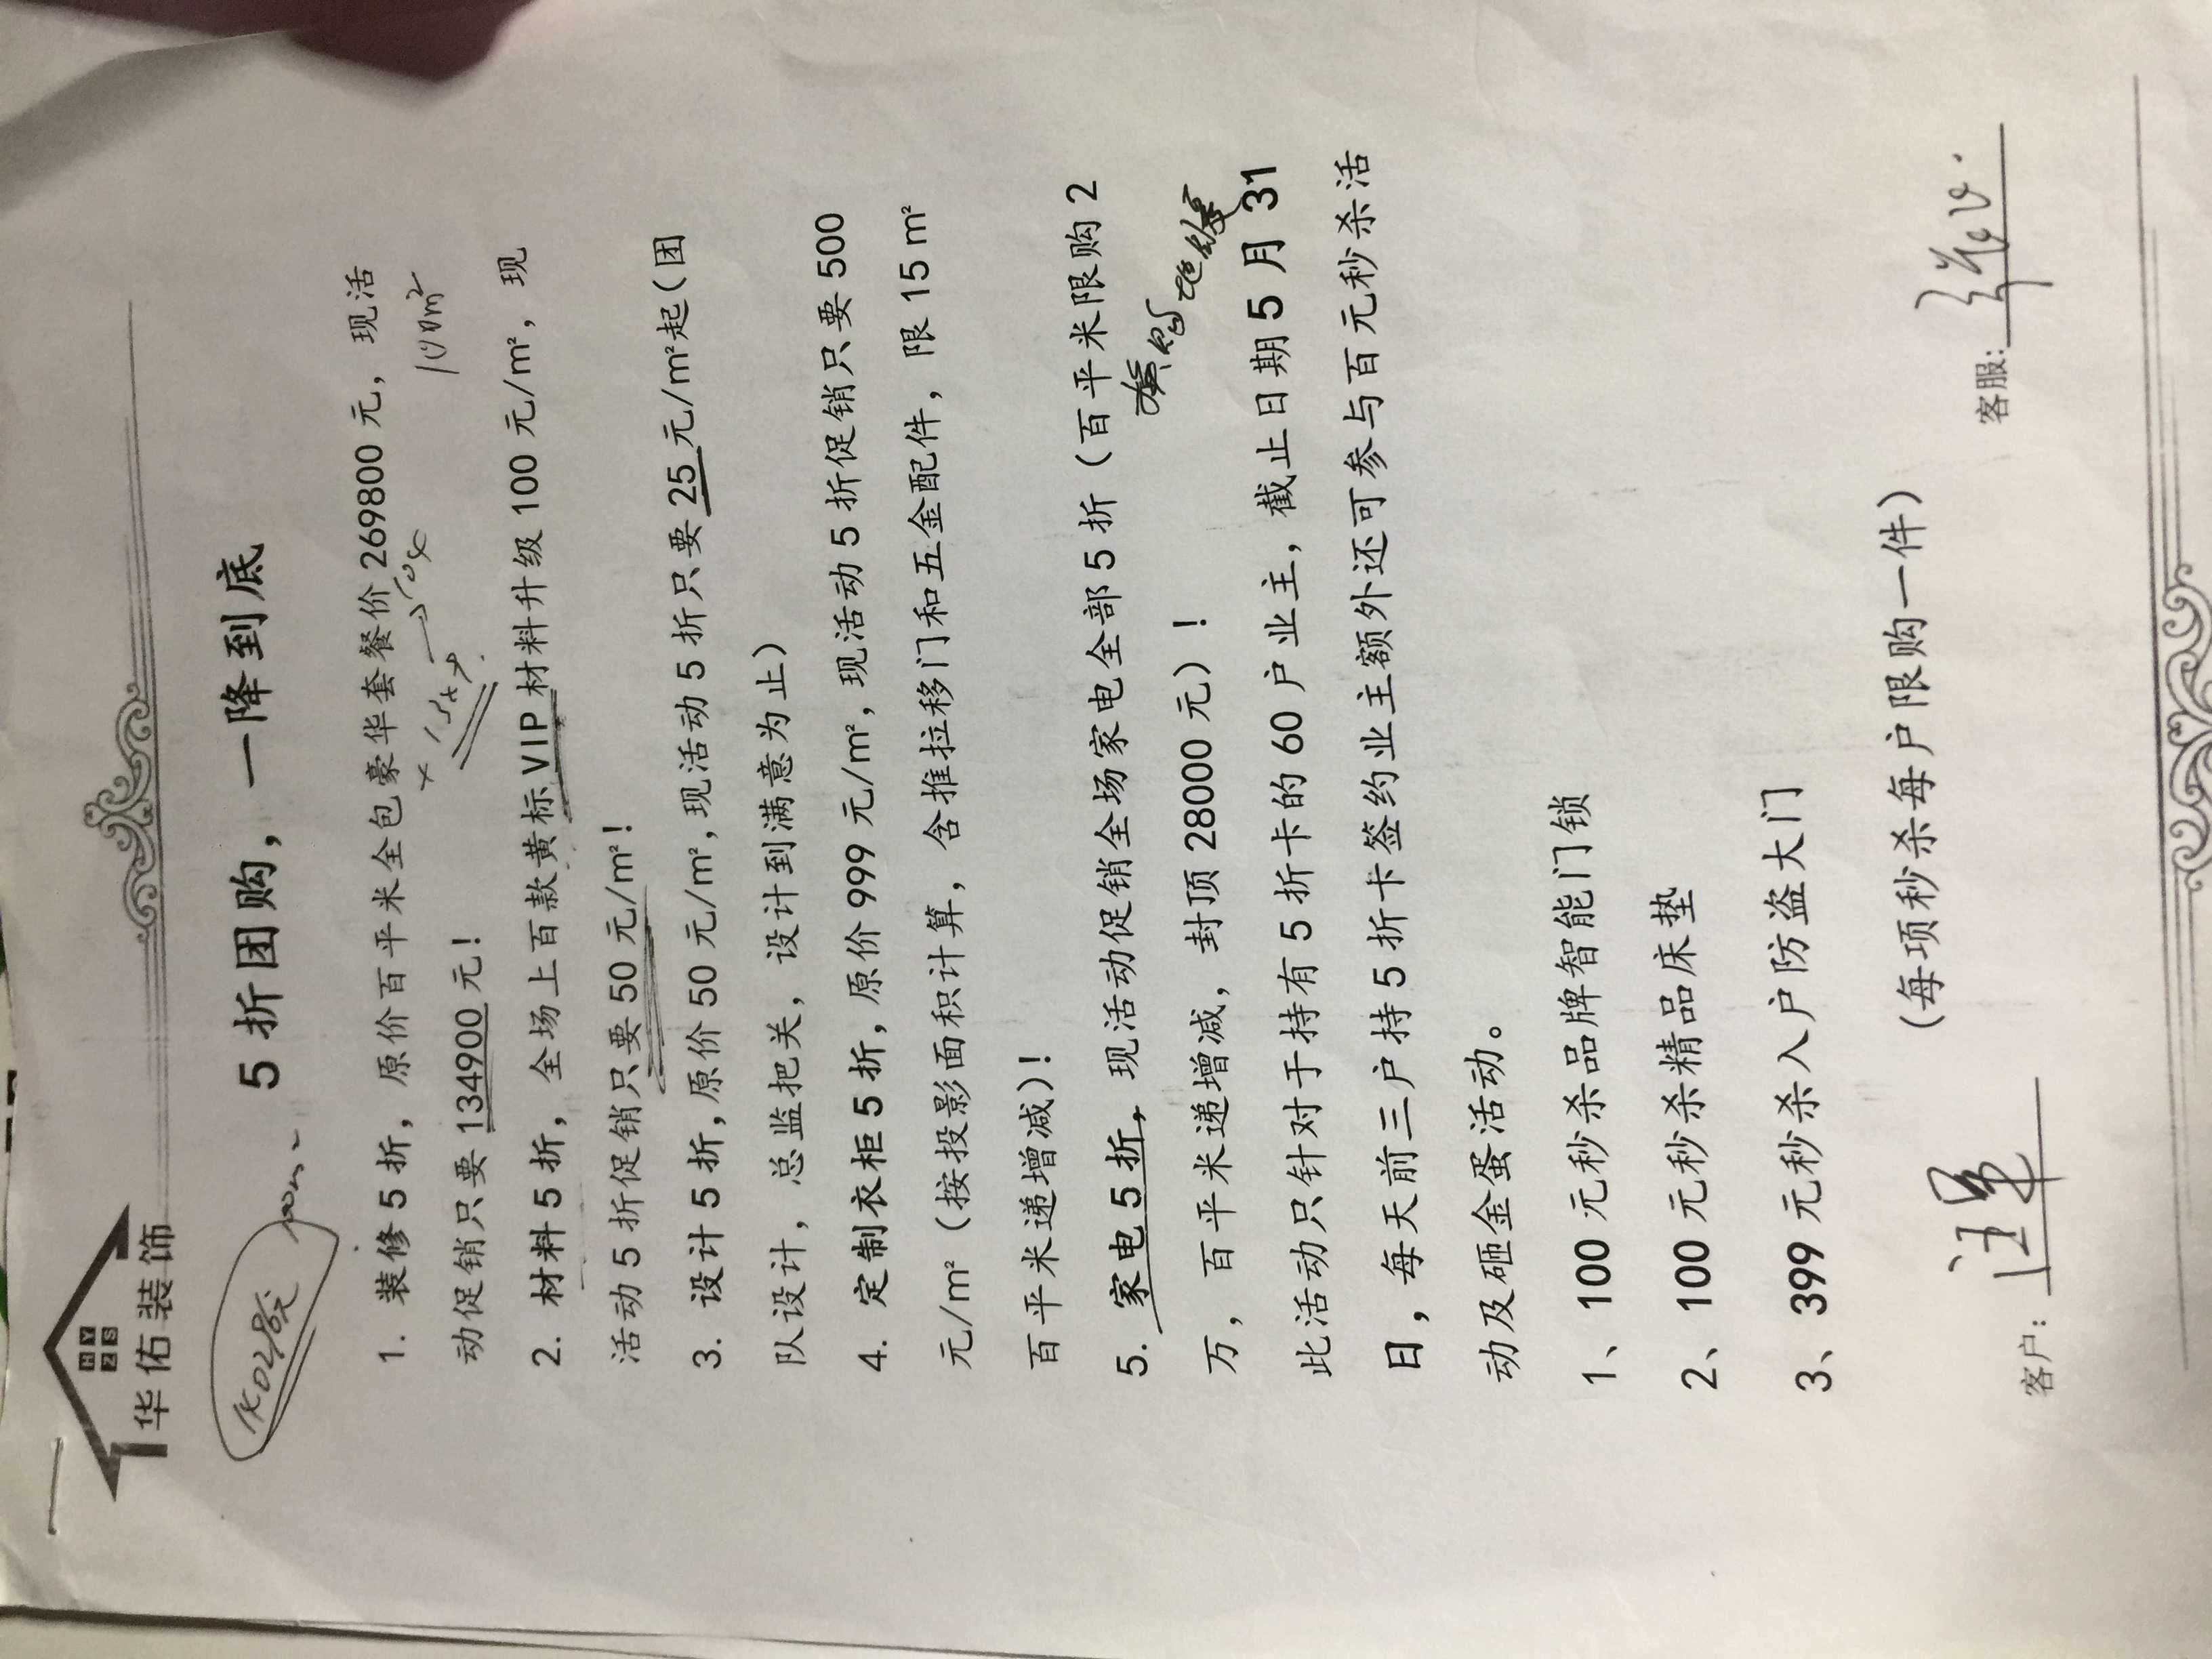 HY
ZS
华佑装饰
5折团购，一降到底
1. 装修5折，原价百平米全包豪华套餐价269800元，现活
100m²
动促销只要134900元！
2. 材料5折，全场上百款黄标VIP材料升级100元/m²，现
活动5折促销只要50元/m²！
3. 设计5折，原价50元/m²，现活动5折只要25元/m²起（团
队设计，总监把关，设计到满意为止）
4. 定制衣柜5折，原价999元/m²，现活动5折促销只要500
元/m²（按投影面积计算，含推拉移门和五金配件，限15m²
百平米递增减）！
5. 家电5折，现活动促销全场家电全部5折（百平米限购2
万，百平米递增减，封顶28000元）！
此活动只针对于持有5折卡的60户业主，截止日期5月31
日，每天前三户持5折卡签约业主额外还可参与百元秒杀活
动及砸金蛋活动。
1、100元秒杀品牌智能门锁
2、100元秒杀精品床垫
3、399元秒杀入户防盗大门
（每项秒杀每户限购一件）
客户： 客服：